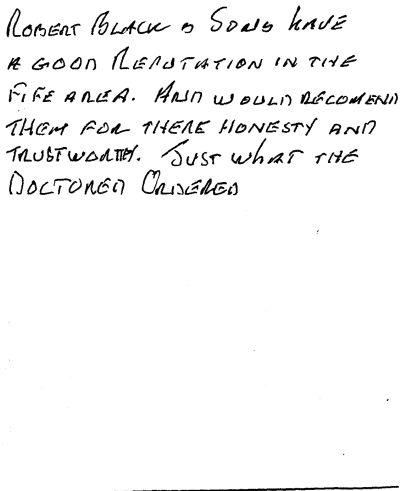 ROBERT BLACK & SONS HAVE
A GOOD REPUTATION IN THE
FIFE AREA. AND WOULD RECOMEND
THEM FOR THERE HONESTY AND
TRUSTWORTHY. JUST WHAT THE
DOCTORED ORDERED